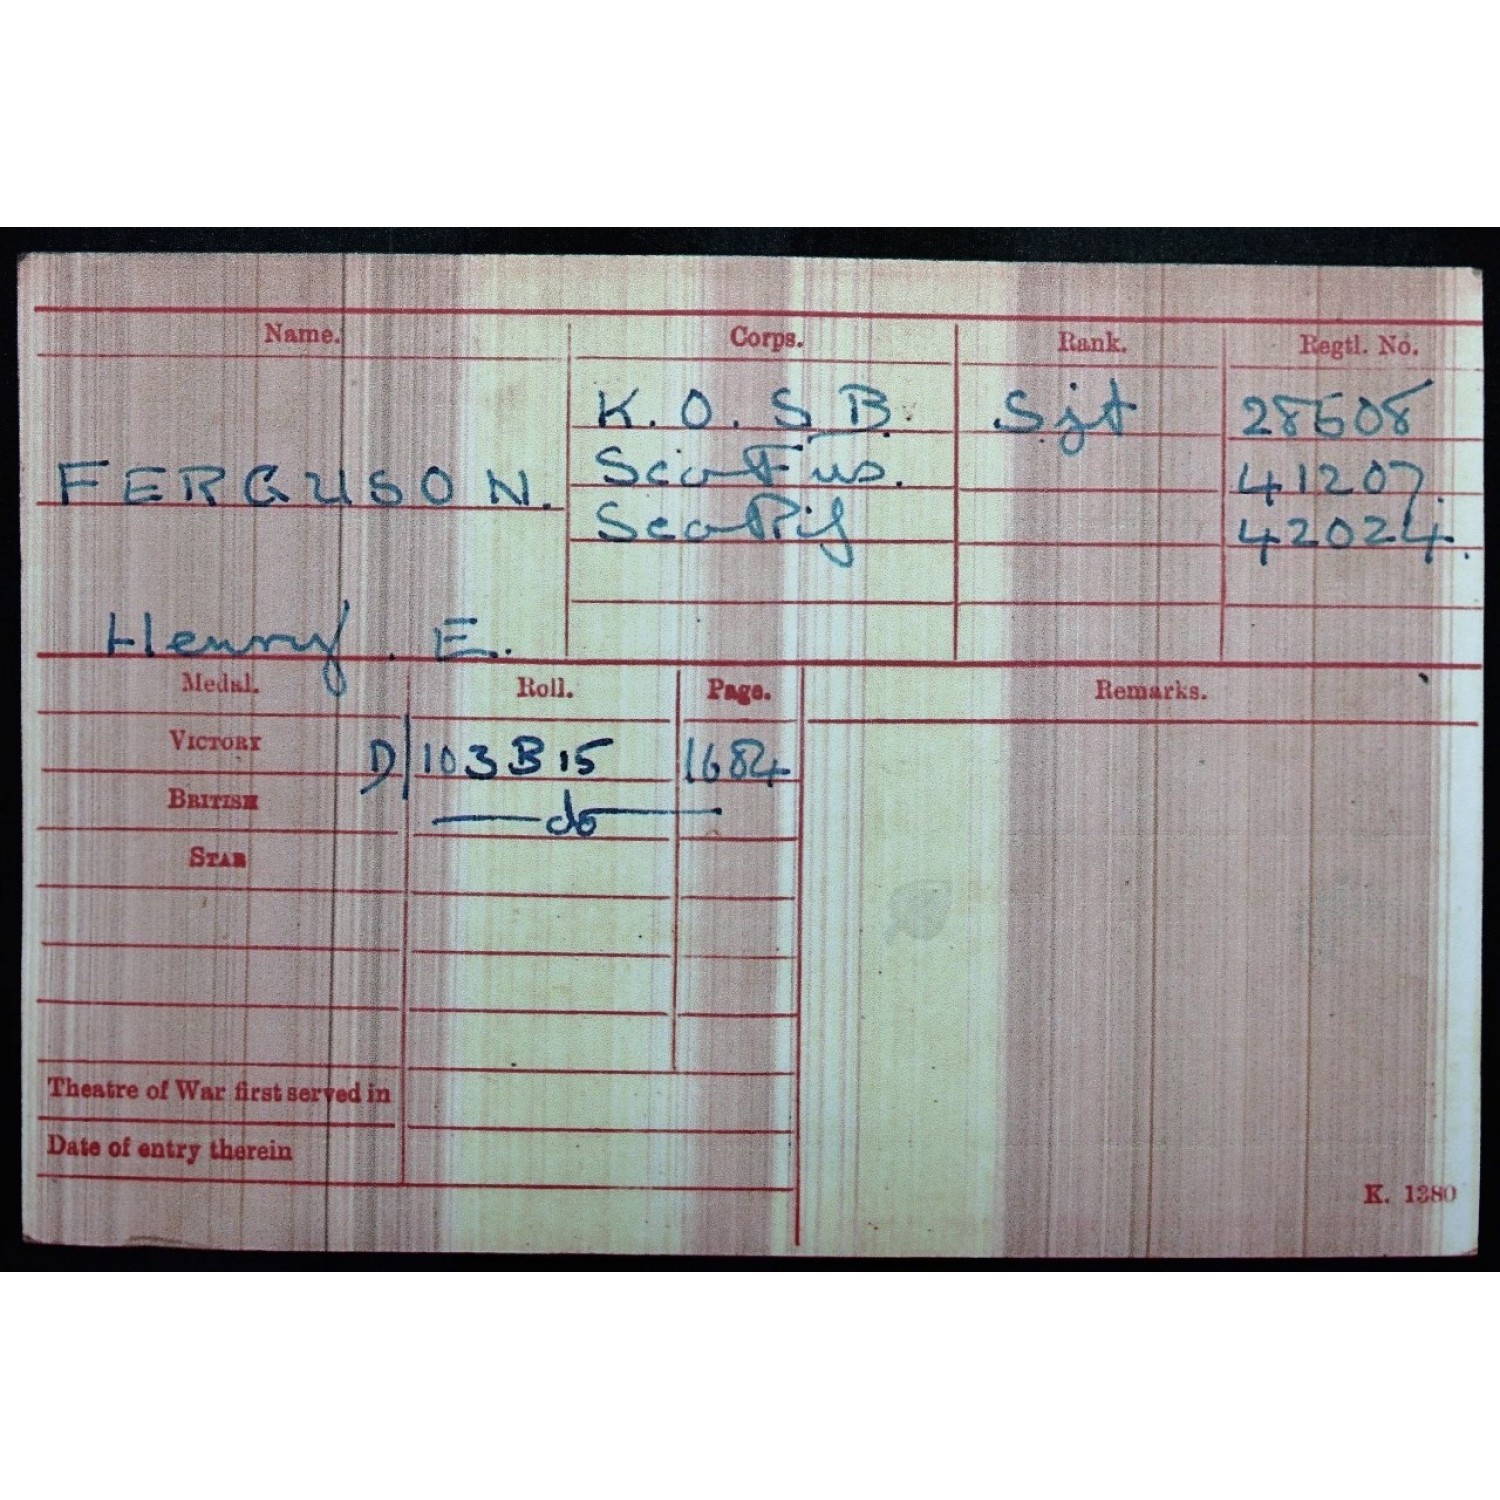 Name. Corps. Rank. Regtl. No.
K. O. S. B. Sjt 28508
FERGUSON. Sco Fus. 41207.
Sco Rif 42024.
Henry. E.
Medal. Roll. Page. Remarks.
VICTORY D/103 B 15 1684
BRITISH do
STAR
Theatre of War first served in
Date of entry therein
K. 1380